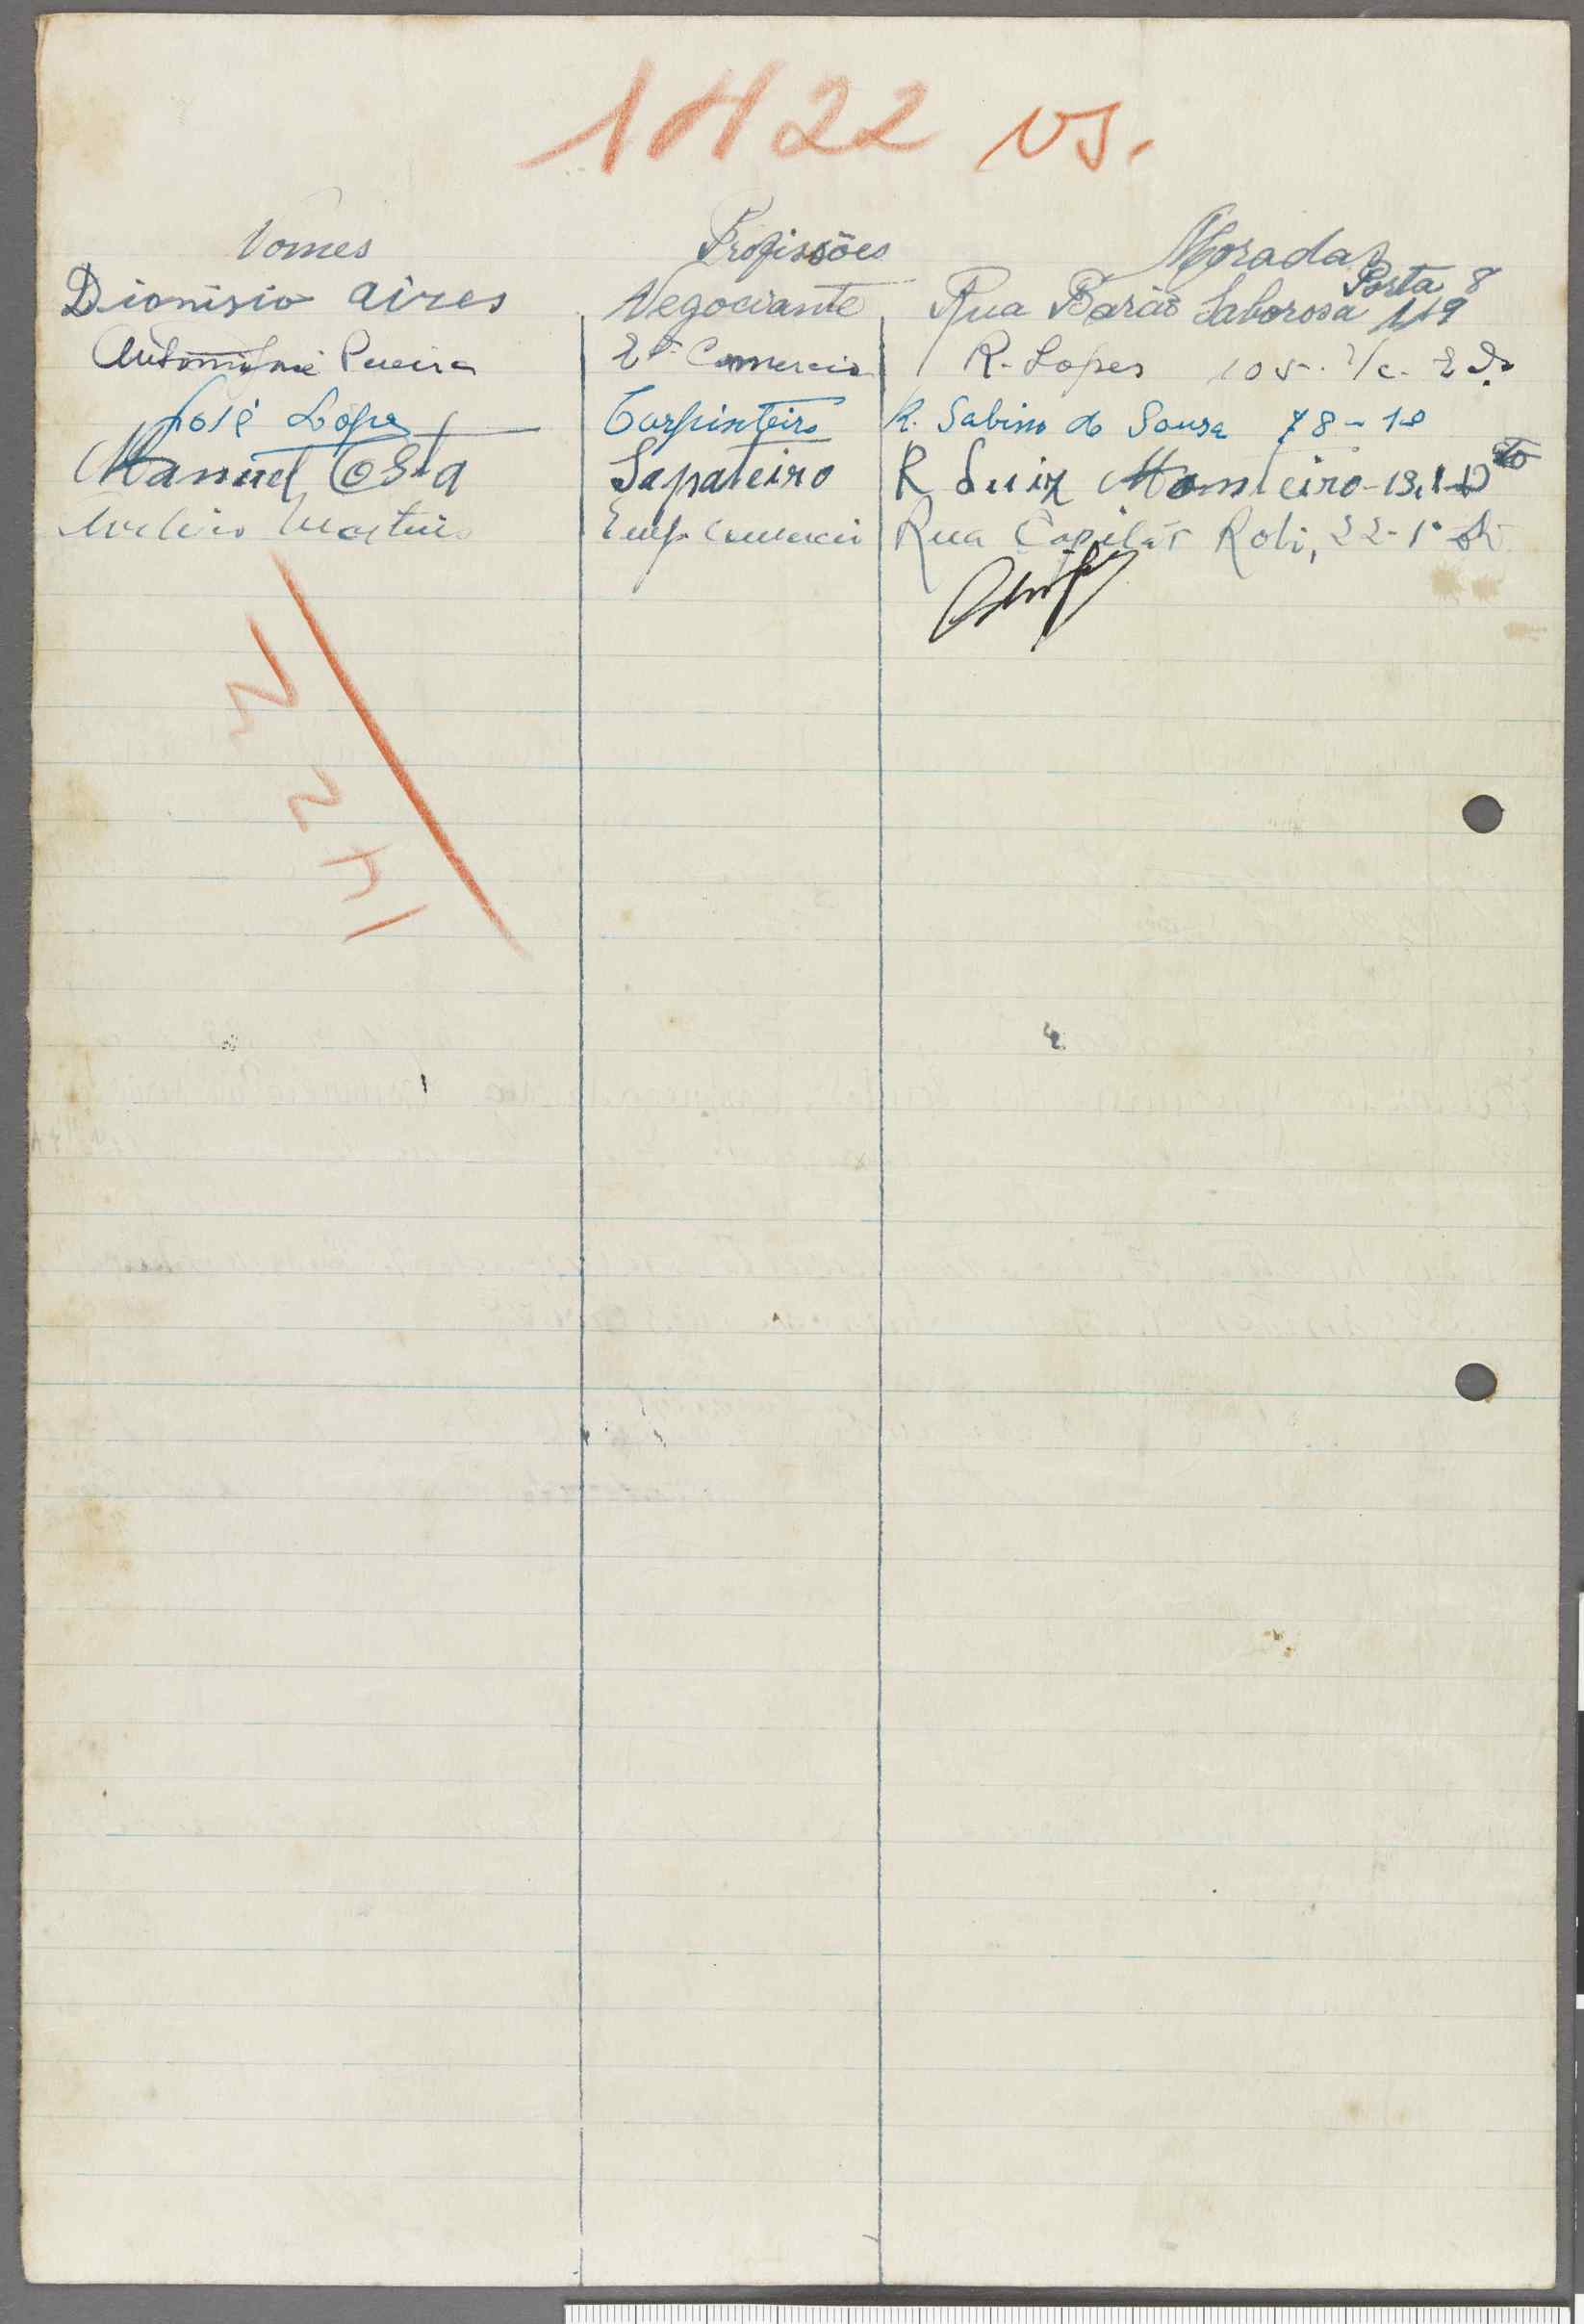 1422 vs.
Nomes Profissões Moradas
Porta 8
Dionisio Aires Negociante Rua Barão Saborosa 119
Antonio José Pereira E. Comercio R. Lopes 105. r/c. E Dº
José Lópes Carpinteiro R. Sabino de Sousa 78-1º
Manuel Costa Sapateiro R Luiz Monteiro-19,1-D to
Martins Emp. Comercio Rua Capitão Robi, 22-1º
1422